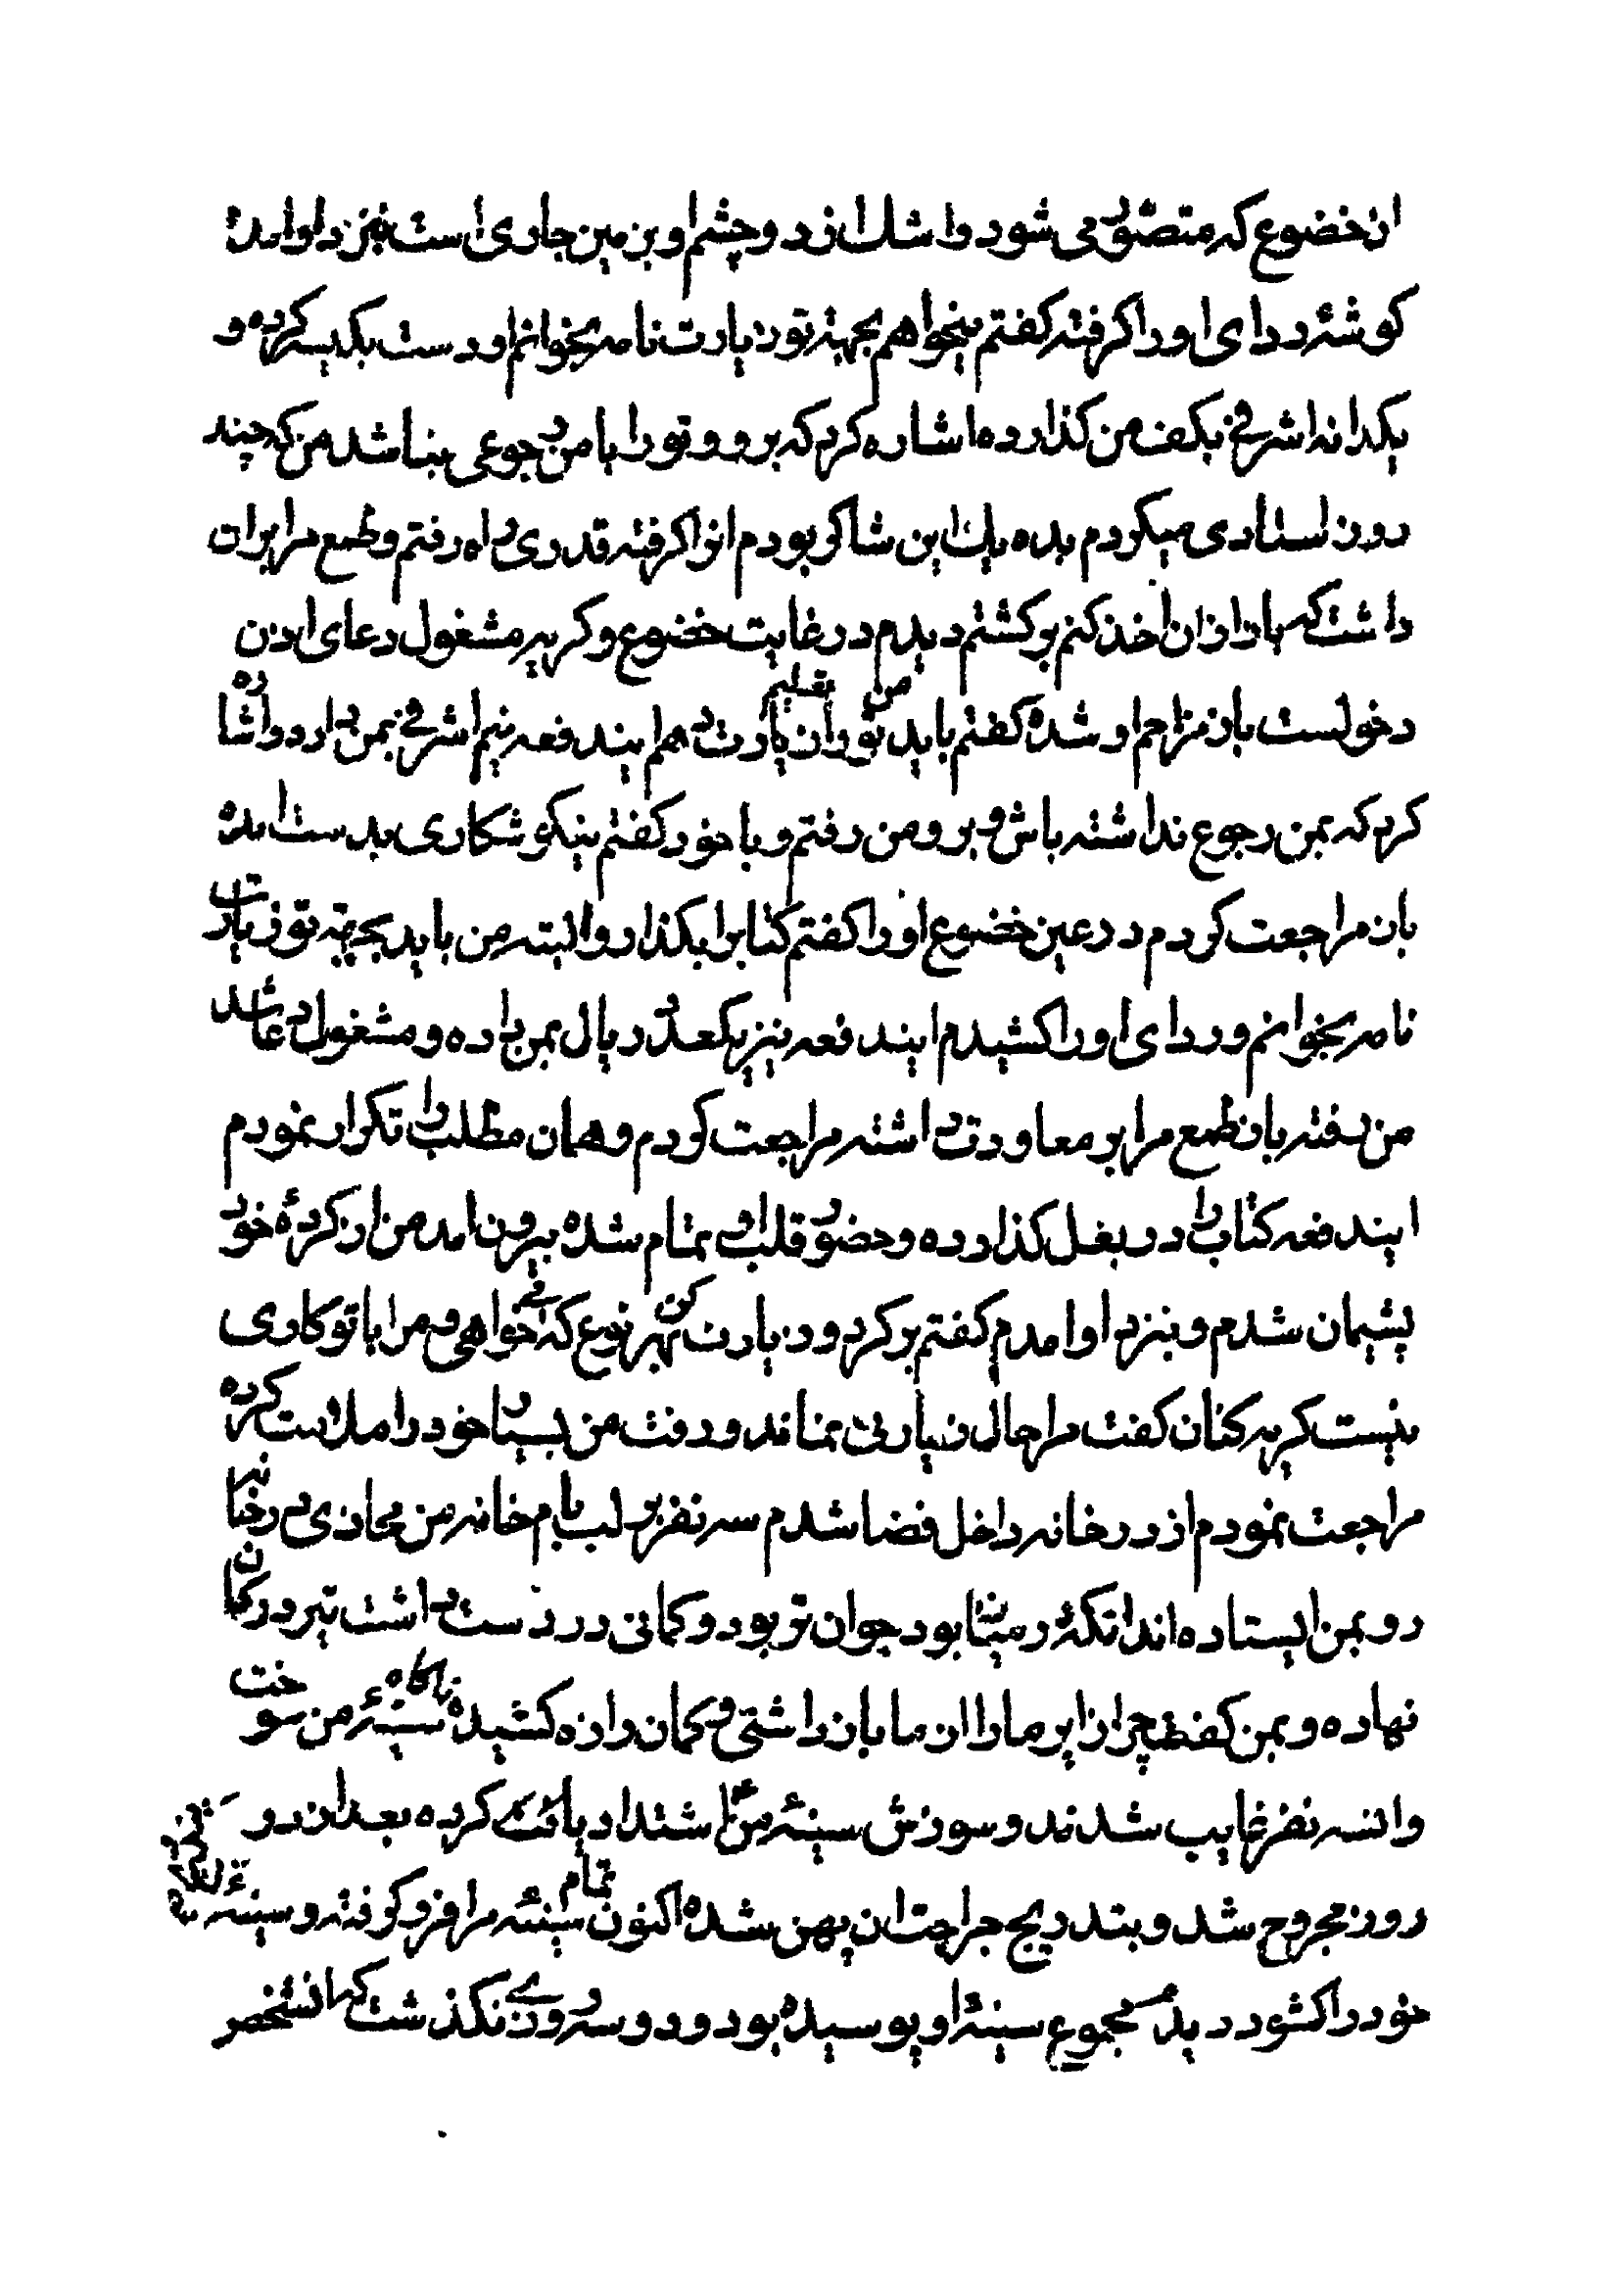 ان خضوع که متصور می شود و اشک از دو چشم او بزمین جاری است بنزد او امدهٔ
کوشهٔ ردای او را کرفته کفتم میخواهم بجهتهٔ تو زیارت نامه بخوانم او دست بکیسه کرده و
یکدانه اشرفی بکف من کذارده اشاره کرد که برو و تو را با من رجوعی نباشد من که چند
روز استادی میکردم بده یک این شاکر بودم انرا کرفته قدری راه رفتم و طمع مرا بران
داشت که باز از ان اخذ کنم برکشتم دیدم در غایت خضوع و کریه مشغول دعای اذن
دخولست باز مزاحم او شده کفتم باید من تو را تعلیم زیارت دهم ایندفعه نیم اشرفی بمن داد و اشاره
کرد که بمن رجوع نداشته باش و برو من رفتم و با خود کفتم نیکو شکاری بدست امده
باز مراجعت کردم در عین خضوع او را کفتم کتابرا بکذار و البته من باید بجهته تو زیارت
نامه بخوانم و ردای او را کشیدم ایندفعه نیز یکعدد ریال بمن داده و مشغول دعا شد
من رفته باز طمع مرا بر معاودت داشته مراجعت کردم و همان مطلب را تکرار نمودم
ایندفعه کتاب را در بغل کذارده و حضور قلب او تمام شده بیرون امد من از کردهٔ خود
پشیمان شدم و بنزد او امدم کفتم برکرد و زیارت کن بهر نوع که خواهی و مرا با تو کاری
نیست کریه کنان کفت مرا حال زیارتی نماند و رفت من بسیار خود را ملامت کرده
مراجعت نمودم از در خانه داخل فضا شدم سه نفر بر لب بام خانه من محاذی در خانه
رو بمن ایستاده اند انکهٔ در میان بود جوان تر بود و کمانی در دست داشت تیر در کمان
نهاده و بمن کفت چرا زایر ما را از ما باز داشتی و کمان را زه کشیده ناکاه سینهٔ من سوخت
و انسه نفر غایب شدند و سوزش سینهٔ من اشتداد یافت کرده بعد از دو
روز مجروح شد و بتدریج جراحت ان پهن شده اکنون تمام سینهٔ مرا فرو کوفته و سینه
خود را کشود دیدم مجموع سینهٔ او پوسیده بود و دو سه روزی نکذشت که انشخص